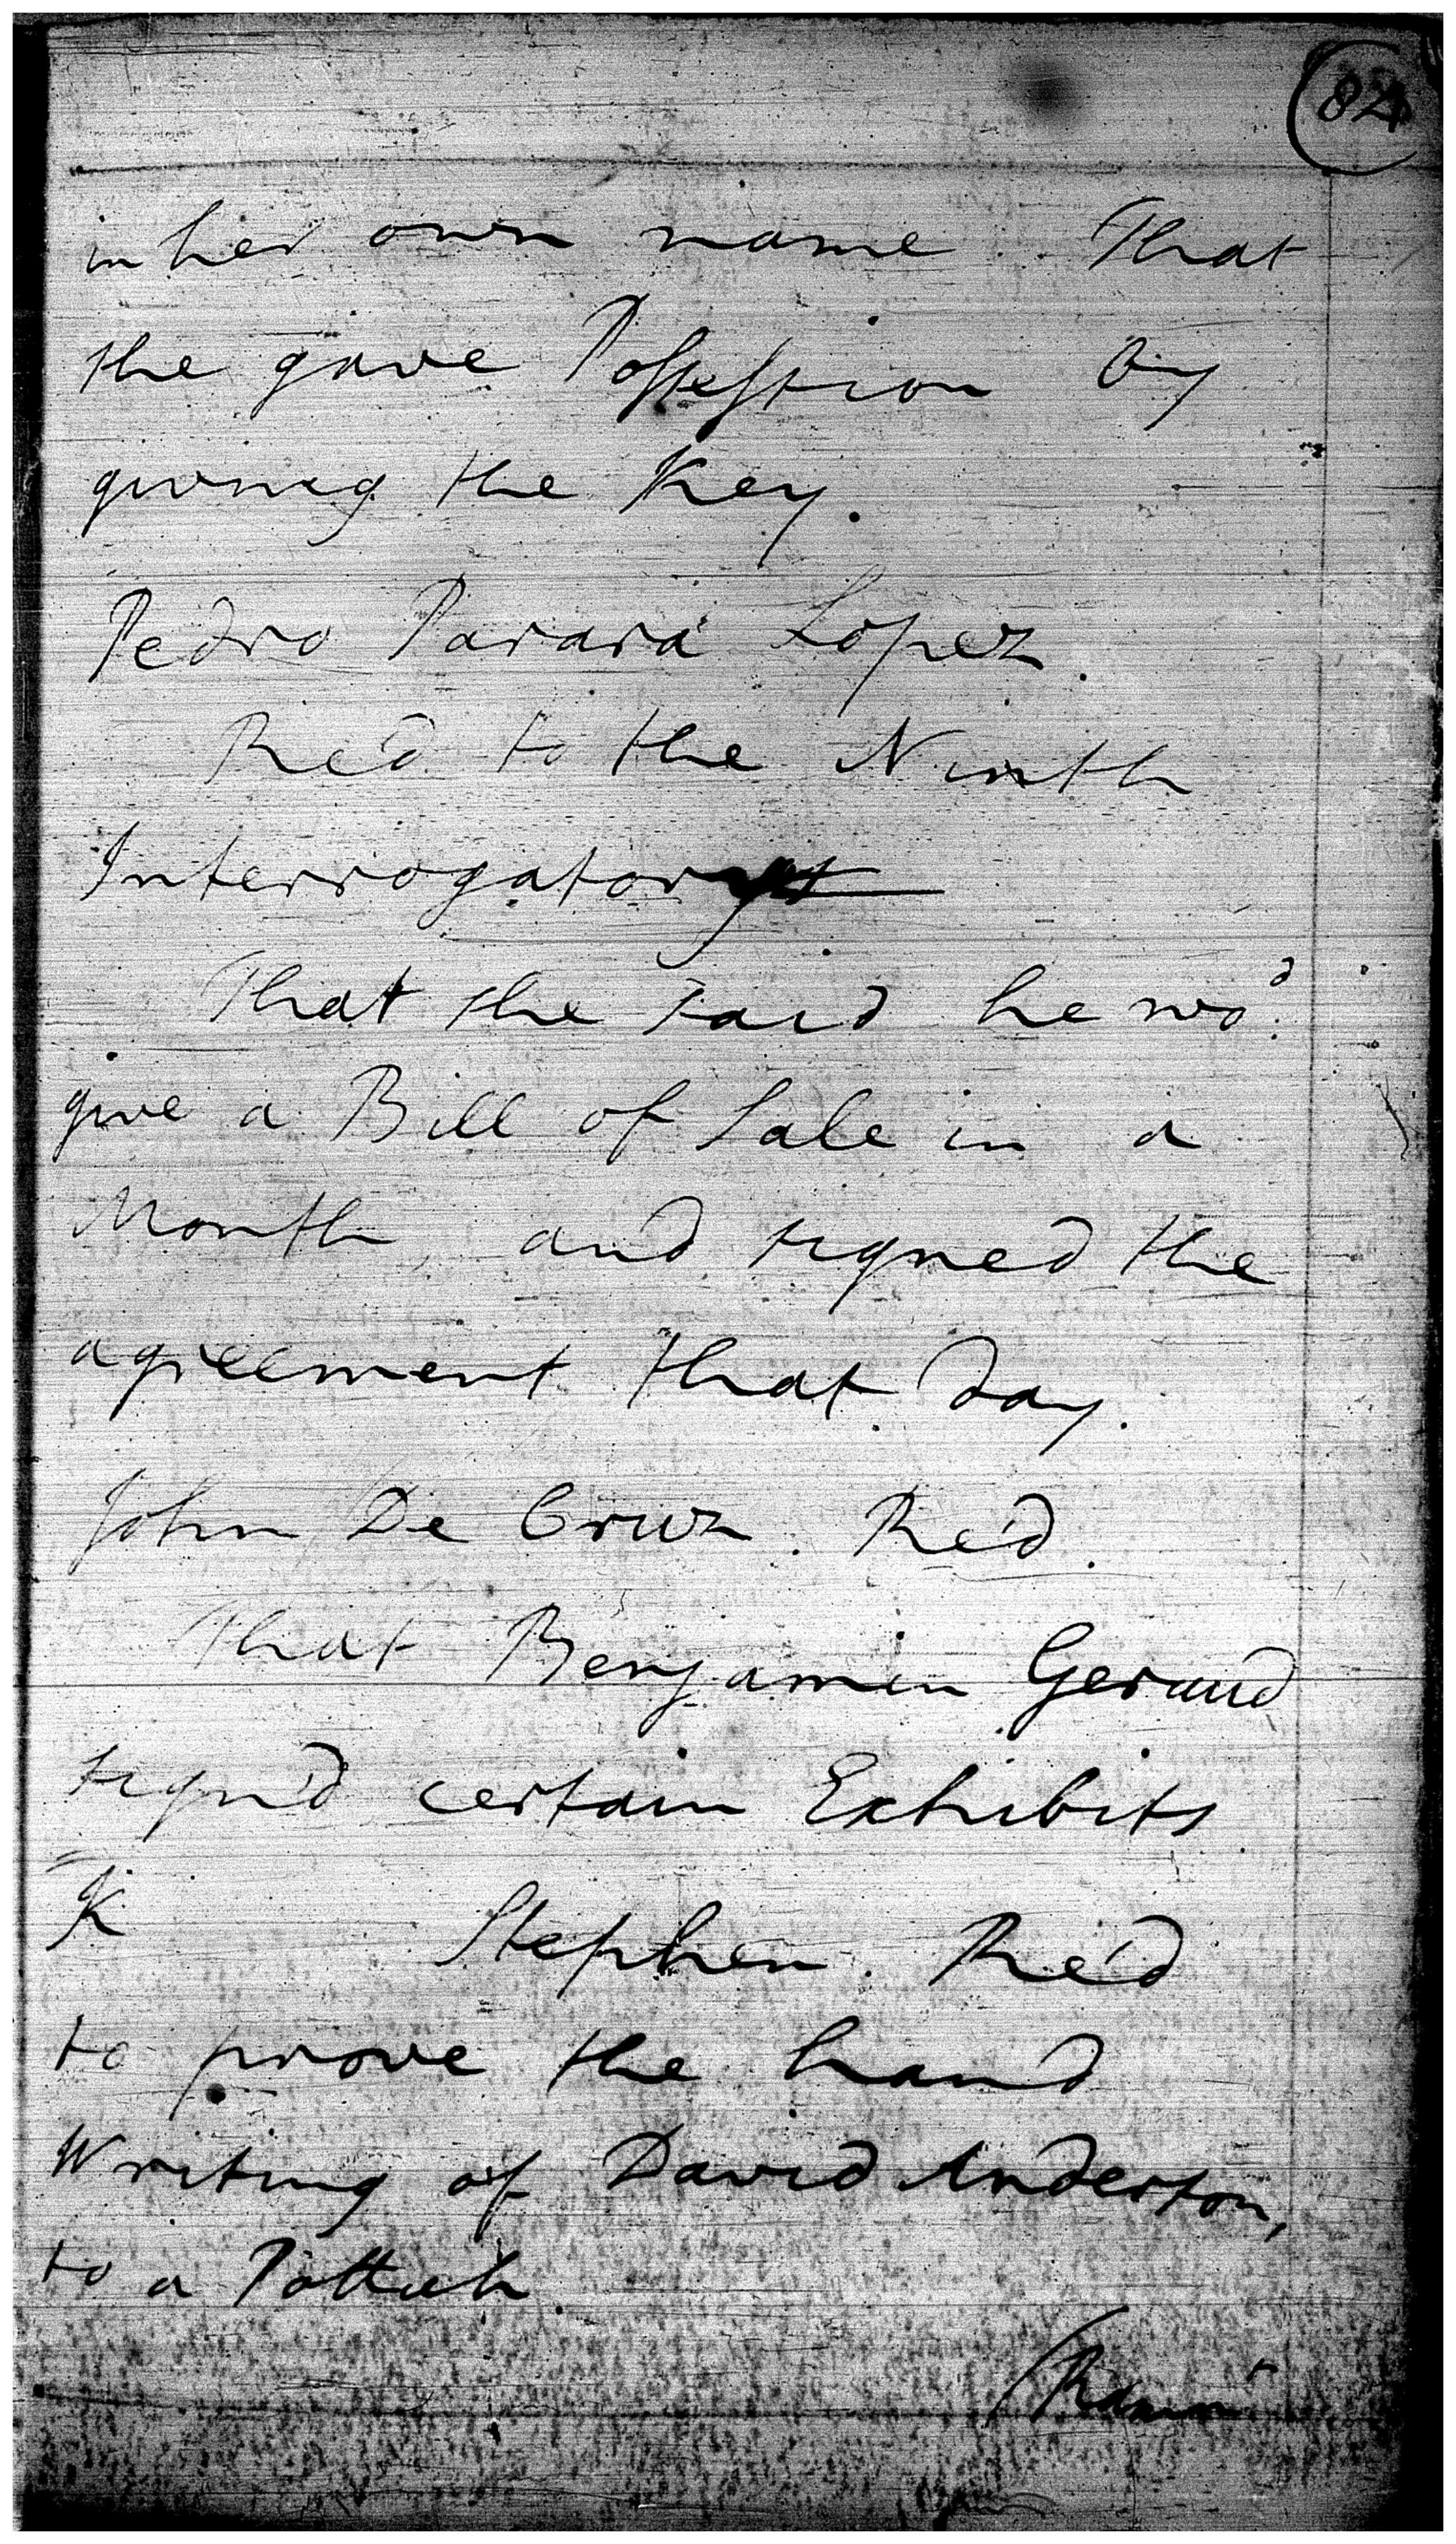 82
in her own name. That
she gave Possession by
giving the Key.
Pedro Parara Lopez.
Re'd to the Ninth
Interrogatory
That she said he wod.
give a Bill of Sale in a
Month, and signed the
agreement that day.
John De Cruz. Re'd.
That Benjamin Geraud
sign'd certain Exhibits
K Stephen. Re'd
to prove the hand
Writing of David Anderson,
to a Pottah.